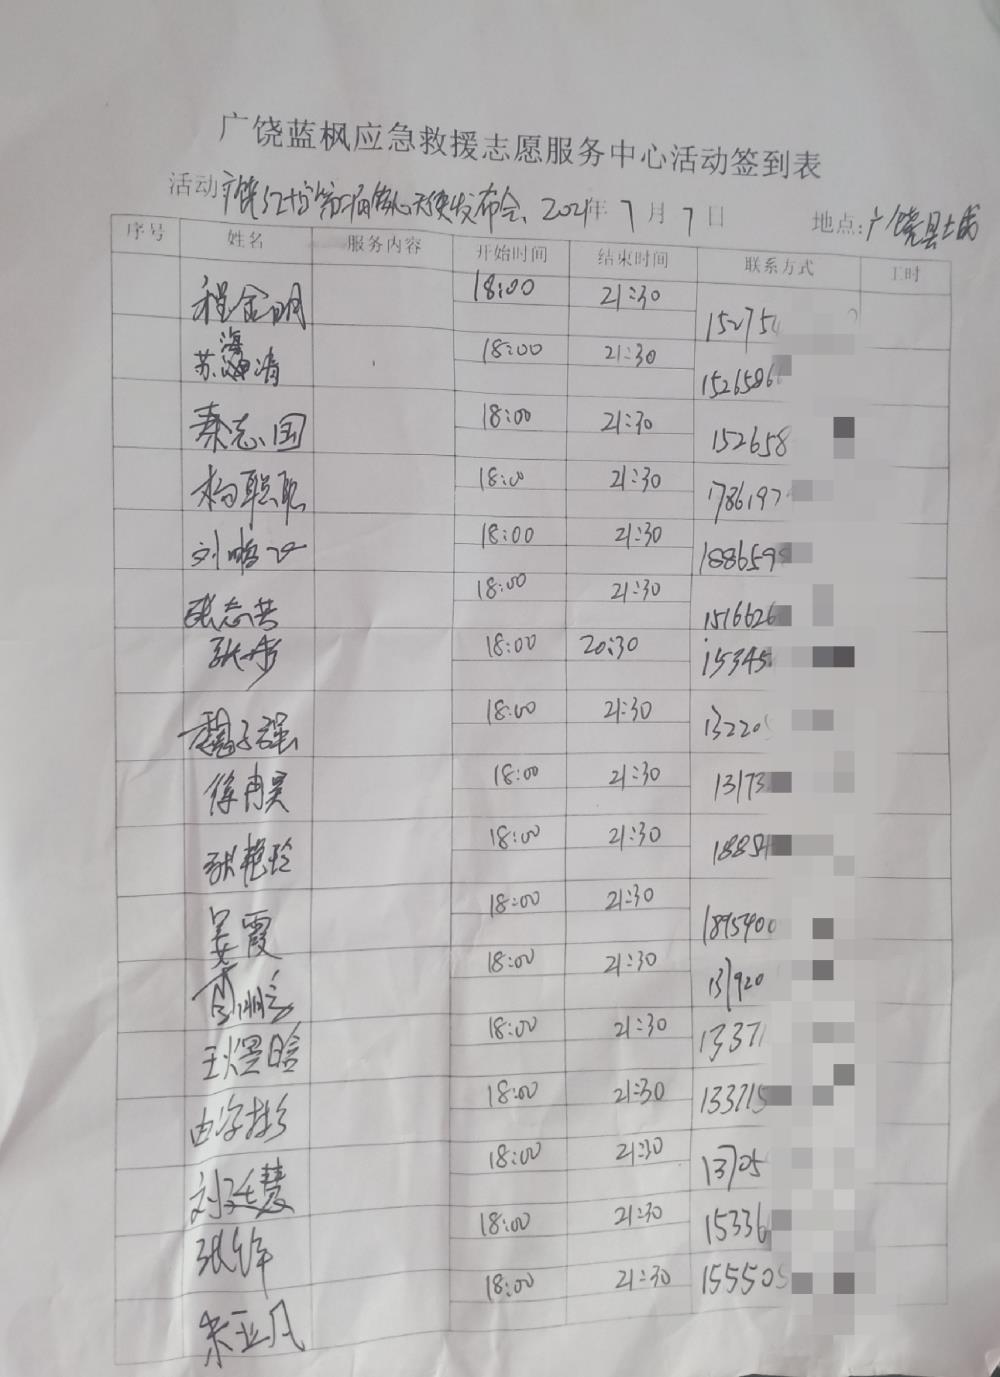 广饶蓝枫应急救援志愿服务中心活动签到表
活动 广饶红十字 天使发布会、2021年 7月 7日 地点:广饶县
序号 姓名 服务内容 开始时间 结束时间 联系方式 工时
程金明 18:00 21:30 15275
苏海清 18:00 21:30 1526586
秦志国 18:00 21:30 152658
杨聪聪 18:00 21:30 1786197
刘 18:00 21:30 188659
张志芸 18:00 21:30 1516626
张 18:00 20:30 15345
魏子强 18:00 21:30 13220
徐冉昊 18:00 21:30 13173
张艳玲 18:00 21:30 1885
吴霞 18:00 21:30 1895400
18:00 21:30 13920
王煜晗 18:00 21:30 13371
由 彬 18:00 21:30 133715
刘廷慧 18:00 21:30 13705
张 18:00 21:30 15336
朱亚凡 18:00 21:30 155505